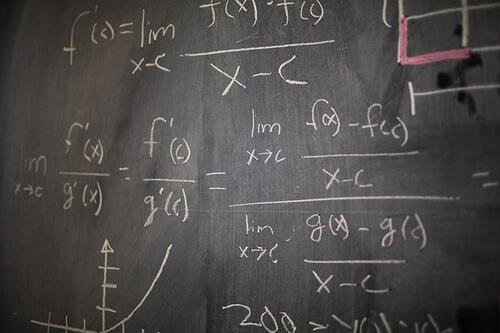 f'(c) = lim x→c (f(x) - f(c)) / (x - c)
lim x→c f'(x) / g'(x) = f'(c) / g'(c) = (lim x→c (f(x) - f(c)) / (x - c)) / (lim x→c (g(x) - g(c)) / (x - c)) =